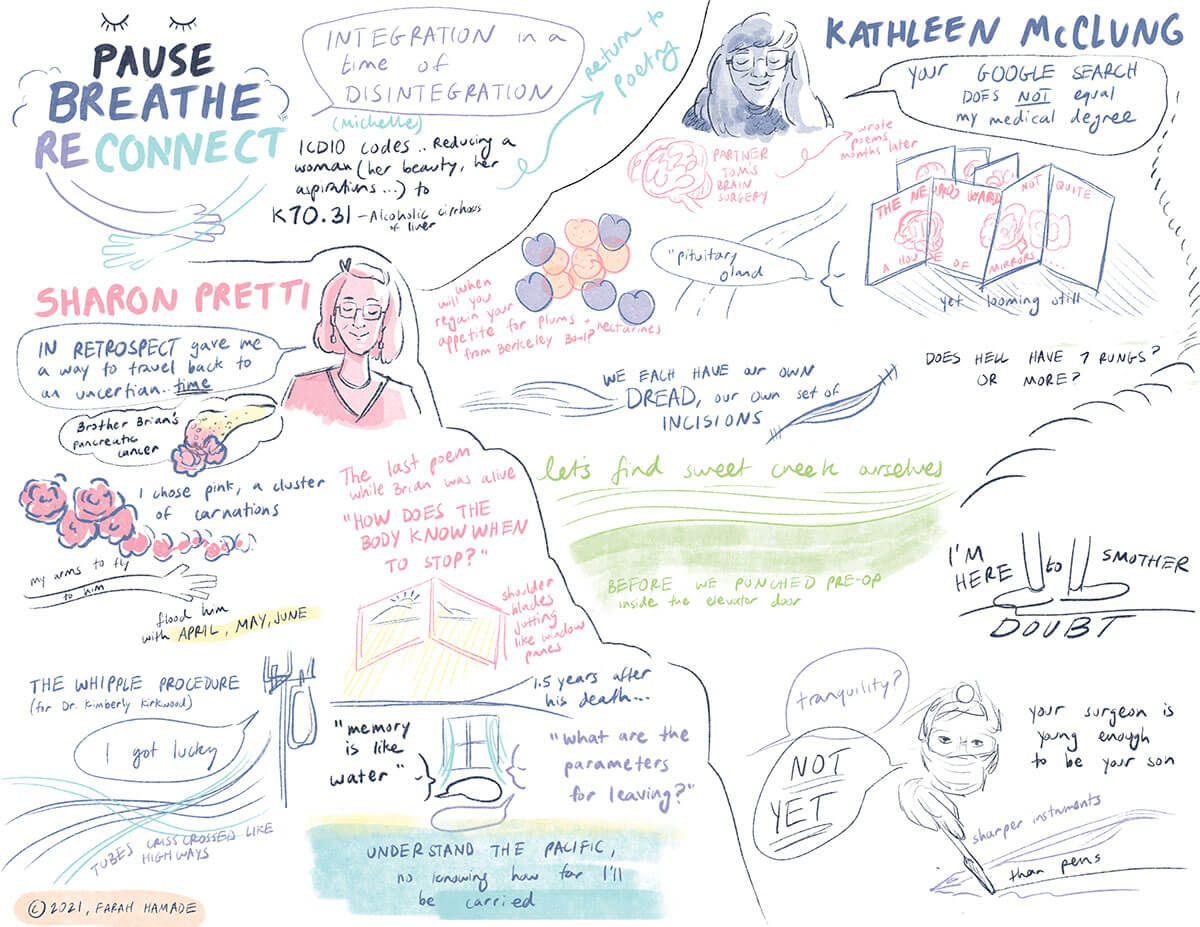 PAUSE
BREATHE
RECONNECT
INTEGRATION in a
time of
DISINTEGRATION
(michelle)
ICD10 codes .. Reducing a
woman (her beauty, her
aspirations...) to
K70.31 - Alcoholic cirrhosis
of liver
return to
poetry
KATHLEEN McCLUNG
your GOOGLE SEARCH
DOES NOT equal
my medical degree
PARTNER
TOM'S
BRAIN
SURGERY
wrote
poems
months later
THE NEURO WARD
NOT QUITE
A HOUSE OF MIRRORS....
yet looming still
"pituitary
gland
when
will you
regain your
appetite for plums + nectarines
from Berkeley Bowl?
WE EACH HAVE OUR OWN
DREAD, OUR OWN SET OF
INCISIONS
DOES HELL HAVE 7 RUNGS?
OR MORE?
let's find sweet creek ourselves
BEFORE WE PUNCHED PRE-OP
inside the elevator door
I'M
HERE to SMOTHER
DOUBT
tranquility?
NOT
YET
your surgeon is
young enough
to be your son
sharper instruments
than pens
SHARON PRETTI
IN RETROSPECT gave me
a way to travel back to
an uncertian.. time
Brother Brian's
pancreatic
cancer
I chose pink, a cluster
of carnations
my arms to fly
to him
flood him
with APRIL, MAY, JUNE
THE WHIPPLE PROCEDURE
(for Dr. Kimberly Kirkwood)
I got lucky
TUBES CRISSCROSSED LIKE
HIGHWAYS
The last poem
while Brian was alive
"HOW DOES THE
BODY KNOW WHEN
TO STOP?"
shoulder
blades
jutting
like window
panes
1.5 years after
his death...
"memory
is like
water"
"What are the
parameters
for leaving?"
UNDERSTAND THE PACIFIC,
no knowing how far I'll
be carried
© 2021, FARAH HAMADE